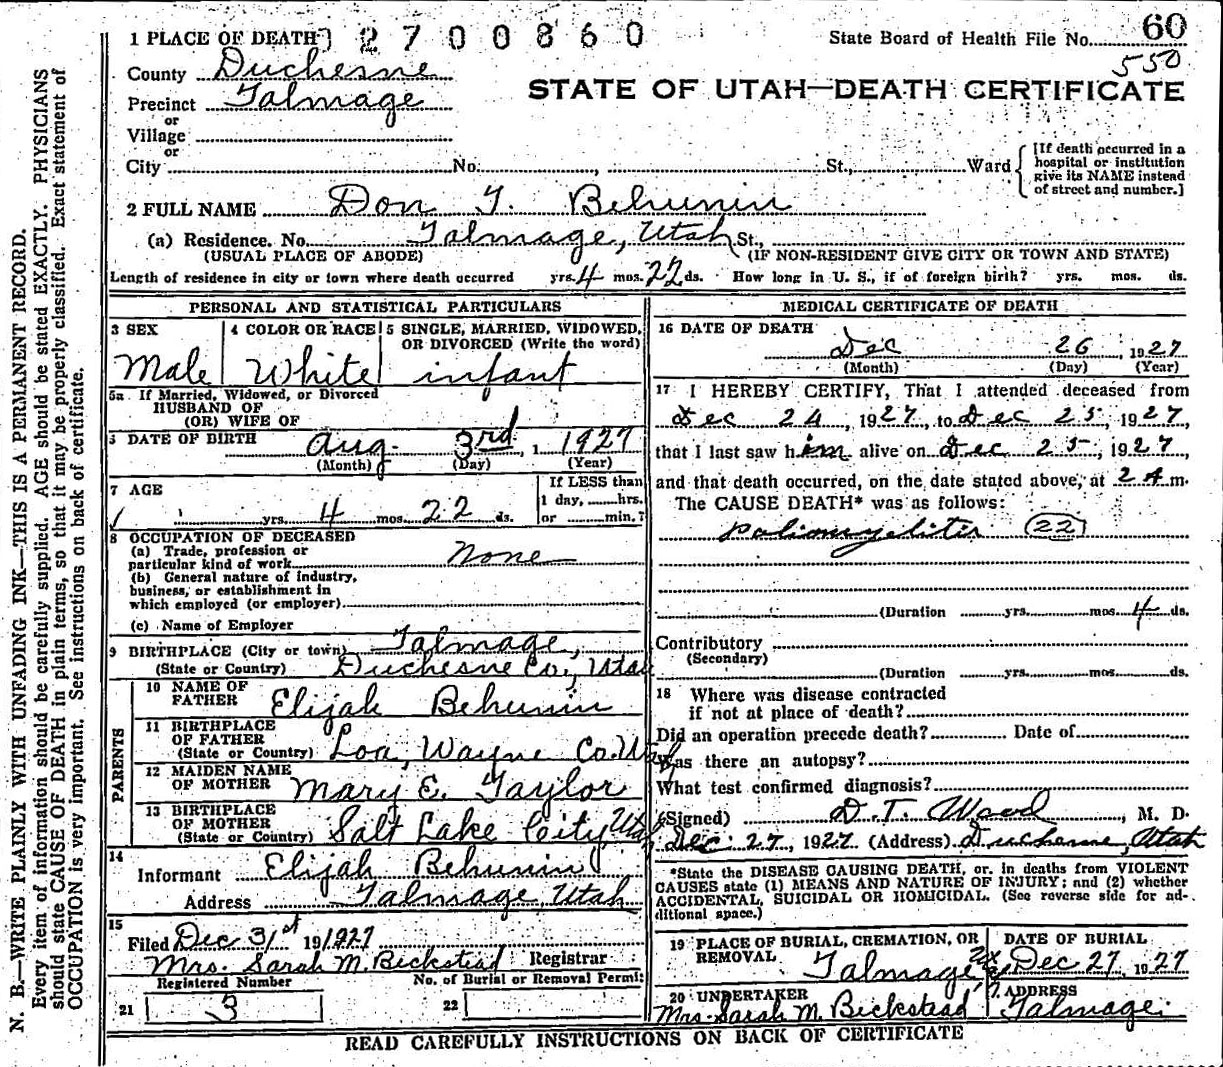 1 PLACE OF DEATH 2 7 0 0 8 6 0
State Board of Health File No. 60
550
County Duchesne
STATE OF UTAH—DEATH CERTIFICATE
Precinct Talmage
or
Village
or
City No. , St., Ward
[If death occurred in a
hospital or institution
give its NAME instead
of street and number.]
2 FULL NAME Don T. Behunin
(a) Residence. No. Talmage, Utah St.,
(USUAL PLACE OF ABODE) (IF NON-RESIDENT GIVE CITY OR TOWN AND STATE)
Length of residence in city or town where death occurred yrs. 4 mos. 22 ds. How long in U. S., if of foreign birth? yrs. mos. ds.
PERSONAL AND STATISTICAL PARTICULARS
3 SEX
Male
4 COLOR OR RACE
White
5 SINGLE, MARRIED, WIDOWED,
OR DIVORCED (Write the word)
infant
5a If Married, Widowed, or Divorced
HUSBAND OF
(OR) WIFE OF
6 DATE OF BIRTH Aug. 3rd, 1927
(Month) (Day) (Year)
7 AGE
yrs. 4 mos. 22 ds.
If LESS than
1 day, hrs.
or min.?
8 OCCUPATION OF DECEASED
(a) Trade, profession or
particular kind of work None
(b) General nature of industry,
business, or establishment in
which employed (or employer)
(c) Name of Employer
9 BIRTHPLACE (City or town) Talmage,
(State or Country) Duchesne Co., Utah
PARENTS
10 NAME OF
FATHER Elijah Behunin
11 BIRTHPLACE
OF FATHER
(State or Country) Loa, Wayne Co. Utah
12 MAIDEN NAME
OF MOTHER Mary E. Taylor
13 BIRTHPLACE
OF MOTHER
(State or Country) Salt Lake City, Utah
14
Informant Elijah Behunin
Address Talmage, Utah
15
Filed Dec 31st 191927
Mrs. Sarah M. Beckstead Registrar
Registered Number No. of Burial or Removal Permit
21 3 22
MEDICAL CERTIFICATE OF DEATH
16 DATE OF DEATH
Dec 26, 1927
(Month) (Day) (Year)
17 I HEREBY CERTIFY, That I attended deceased from
Dec 24, 1927, to Dec 25, 1927,
that I last saw him alive on Dec 25, 1927
and that death occurred, on the date stated above, at 2 A m.
The CAUSE DEATH* was as follows:
poliomyelitis (22)
(Duration yrs. mos. 4 ds.
Contributory
(Secondary)
(Duration yrs. mos. ds.
18 Where was disease contracted
if not at place of death?
Did an operation precede death? Date of
Was there an autopsy?
What test confirmed diagnosis?
(Signed) D. T. Wood, M. D.
Dec. 27, 1927 (Address) Duchesne, Utah
*State the DISEASE CAUSING DEATH, or in deaths from VIOLENT
CAUSES state (1) MEANS AND NATURE OF INJURY; and (2) whether
ACCIDENTAL, SUICIDAL OR HOMICIDAL. (See reverse side for ad-
ditional space.)
19 PLACE OF BURIAL, CREMATION, OR
REMOVAL Talmage
DATE OF BURIAL
Dec 27, 1927
20 UNDERTAKER
Mrs. Sarah M. Beckstead
ADDRESS
Talmage.
READ CAREFULLY INSTRUCTIONS ON BACK OF CERTIFICATE
N. B.—WRITE PLAINLY WITH UNFADING INK—THIS IS A PERMANENT RECORD.
Every item of information should be carefully supplied. AGE should be stated EXACTLY. PHYSICIANS
should state CAUSE OF DEATH in plain terms, so that it may be properly classified. Exact statement of
OCCUPATION is very important. See instructions on back of certificate.